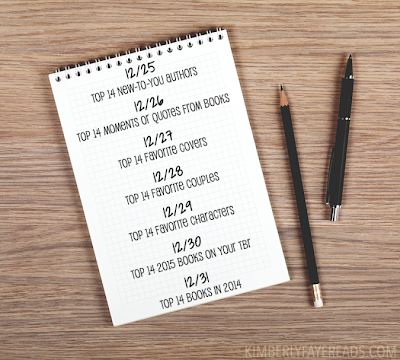 12/25
TOP 14 NEW-TO-YOU AUTHORS
12/26
TOP 14 MOMENTS OR QUOTES FROM BOOKS
12/27
TOP 14 FAVORITE COVERS
12/28
TOP 14 FAVORITE COUPLES
12/29
TOP 14 FAVORITE CHARACTERS
12/30
TOP 14 2015 BOOKS ON YOUR TBR
12/31
TOP 14 BOOKS IN 2014
KIMBERLYFAYEREADS.COM